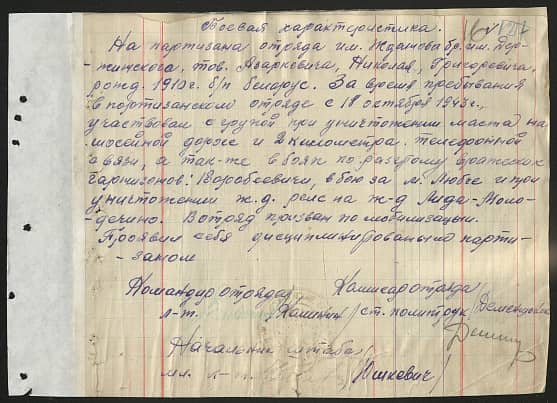 Боевая характеристика.
На партизана отряда им. Жданова бр. им. Дзер-
-жинского, тов. Азаркевича, Николая, Григоревича,
рожд. 1910 г. б/п беларус. За время пребывания
в партизанском отряде с 18 октября 1943 г.,
участвовал с группой при уничтожении моста на
шосейной дороге и 2 километра телефонной
связи, а так-же в боях по разгрому вражеских
гарнизонов: Воробевичи, в бою за м. Любче и при
уничтожении ж.д. релс на ж-д Лида-Моло-
дечино. В отряд призван по мобилизацыи.
Проявил себя дисциплинированым парти-
-заном
Командир отряда Комисар отряда
л-т. /Калинин/ ст. политрук
Начальник штаба
мл. л-т. /Юшкевич/